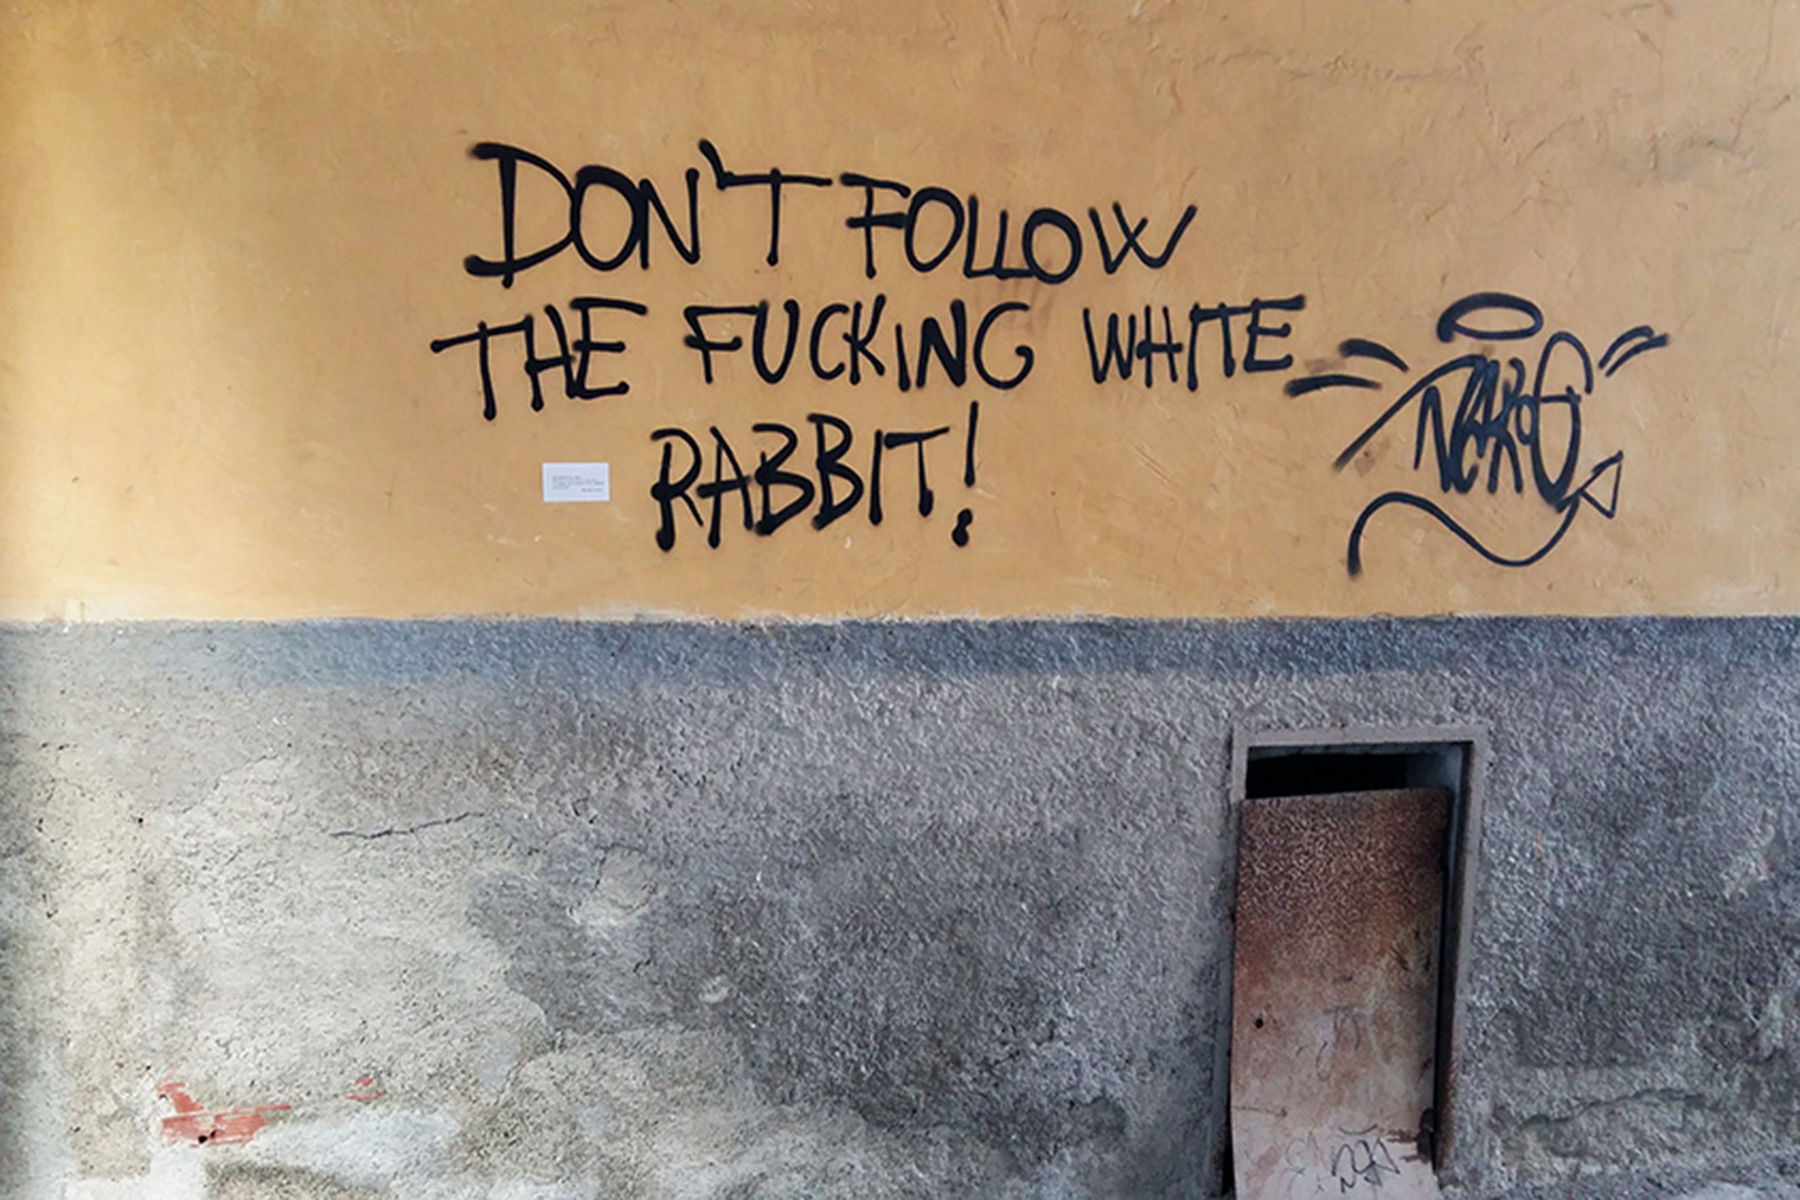 DON'T FOLLOW
THE FUCKING WHITE
RABBIT!
NEKO